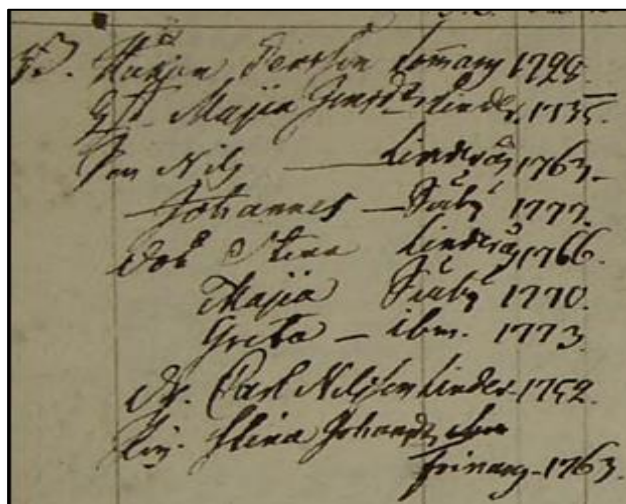 Håkan Persson Commary 1728.
H. Majia Jonsdr Linder. 1735.
Son Nils — Linderås 1763.
Johannes — Säby 1777.
dotr Stina Linderås 1766.
Majia Säby 1770.
Greta — ibm. 1773.
dr. Carl Nilsson Linder. 1752.
Pig. Stina Johansdr
1763.